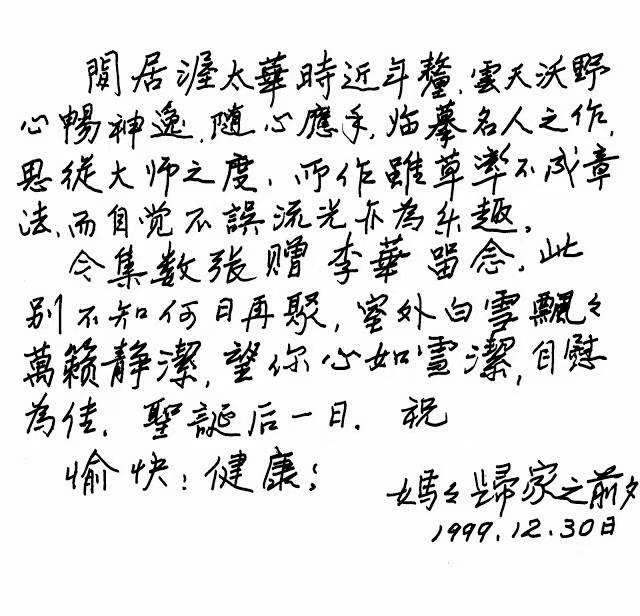 閒居渥太華時近年釐,雲天沃野
心暢神逸,随心應手,临摹名人之作,
思從大师之度,所作雖草率不成章
法,而自觉不誤流光亦為乐趣。
今集数張赠李華留念,此
别不知何日再聚,室外白雪飄々
萬籁静潔,望你心如雪潔,自慰
為佳,聖誕后一日.祝
愉快!健康!
媽々歸家之前夕
1999.12.30日